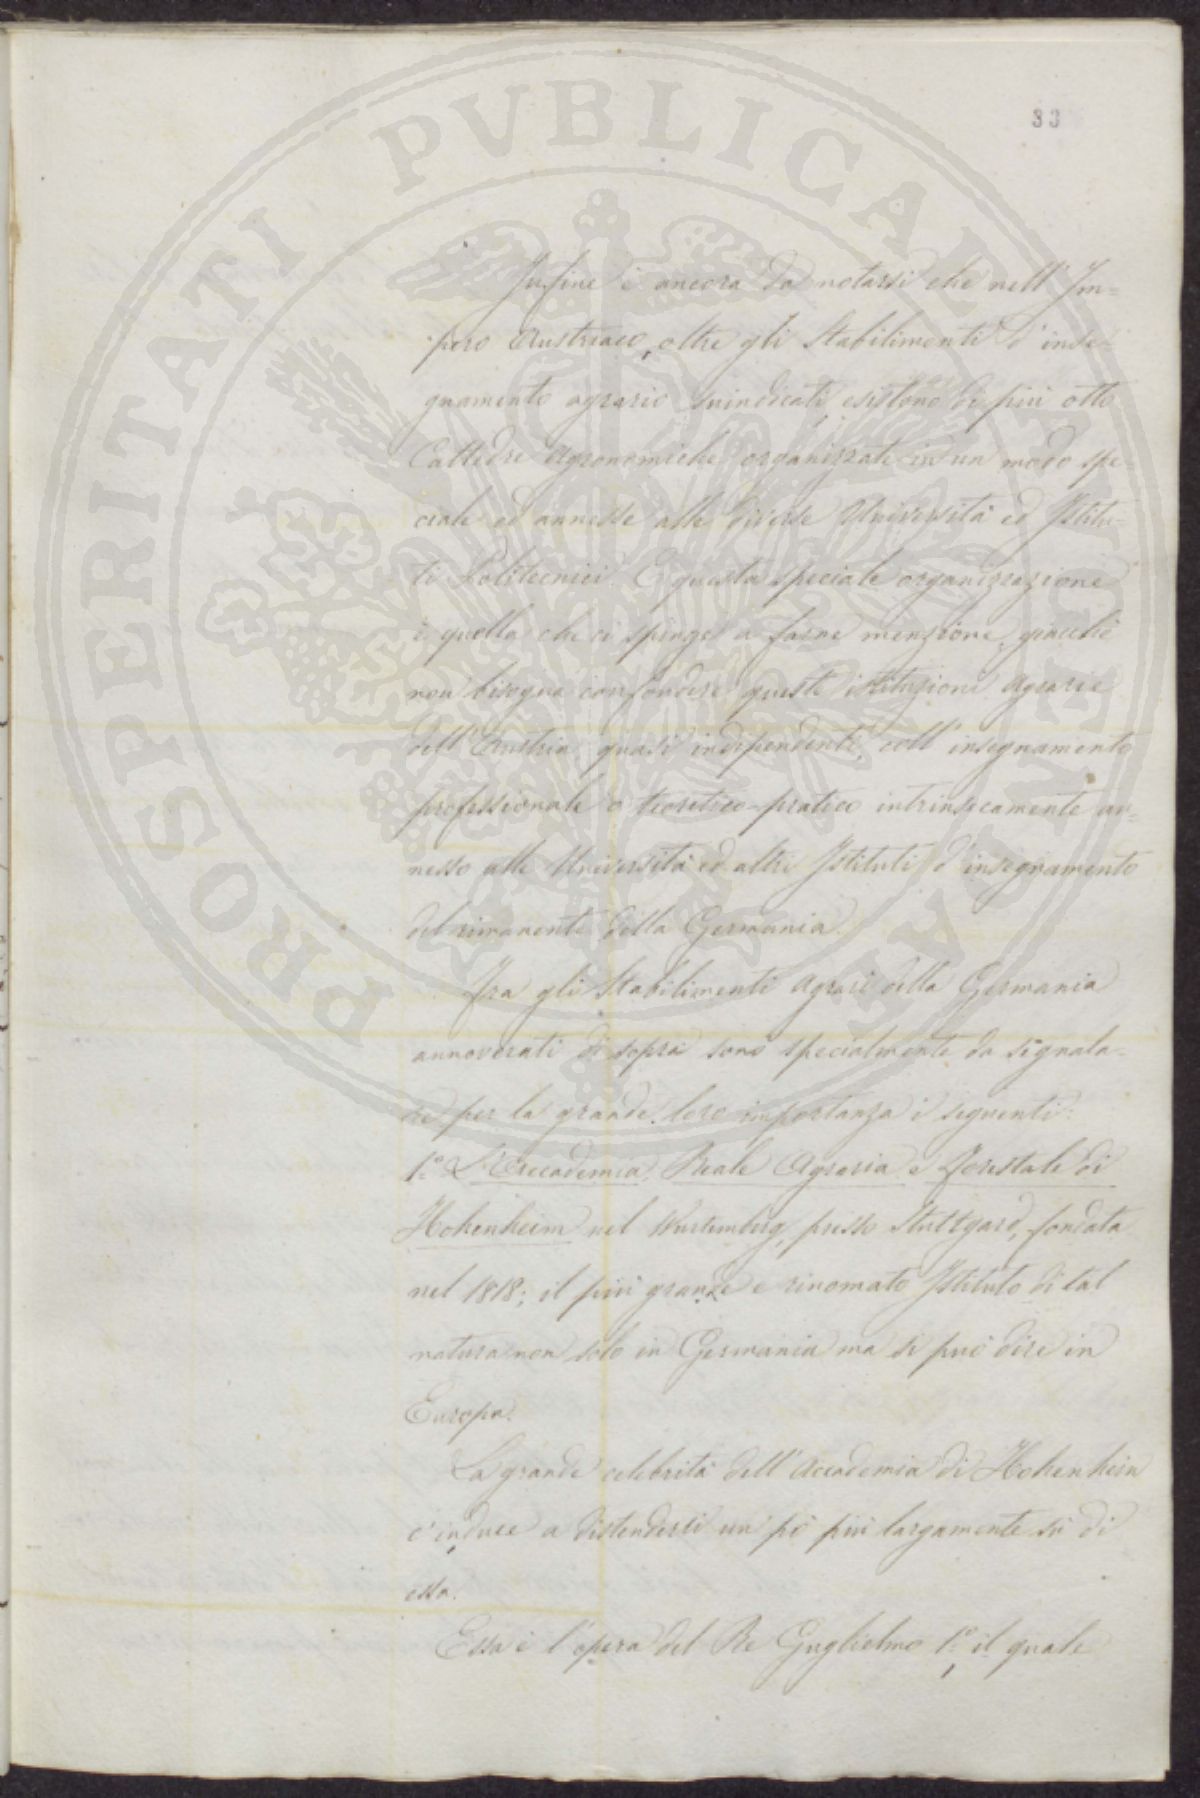 33
PROSPERITATI PVBLICAE AVGENDAE
Infine è ancora da notarsi che nell' Im=
pero Austriaco, oltre gli Stabilimenti d' inse-
gnamento agrario suindicati esistono di più otto
Cattedre Agronomiche organizzate in un modo spe-
ciale ed annesse alle diverse Università ed Istitu=
ti Politecnici. E questa speciale organizzazione
è quella che ci spinge a farne menzione, giacchè
non bisogna confondere queste istituzioni Agrarie
dell' Austria quasi indipendenti, coll' insegnamento
professionale o teoretico-pratico intrinsecamente an=
nesso alle Università ed altri Istituti d' insegnamento
del rimanente della Germania.
Fra gli Stabilimenti Agrari della Germania
annoverati di sopra sono specialmente da segnala=
re per la grande loro importanza i seguenti:
1.° L'Accademia Reale Agraria e Forestale di
Hohenheim nel Wurtemberg, presso Stuttgard, fondata
nel 1818; il più grande e rinomato Istituto di tal
natura non solo in Germania ma si può dire in
Europa.
La grande celebrità dell' Accademia di Hohenheim
c' induce a distenderci un pò più largamente su di
essa.
Essa è l' opera del Re Guglielmo 1.° il quale